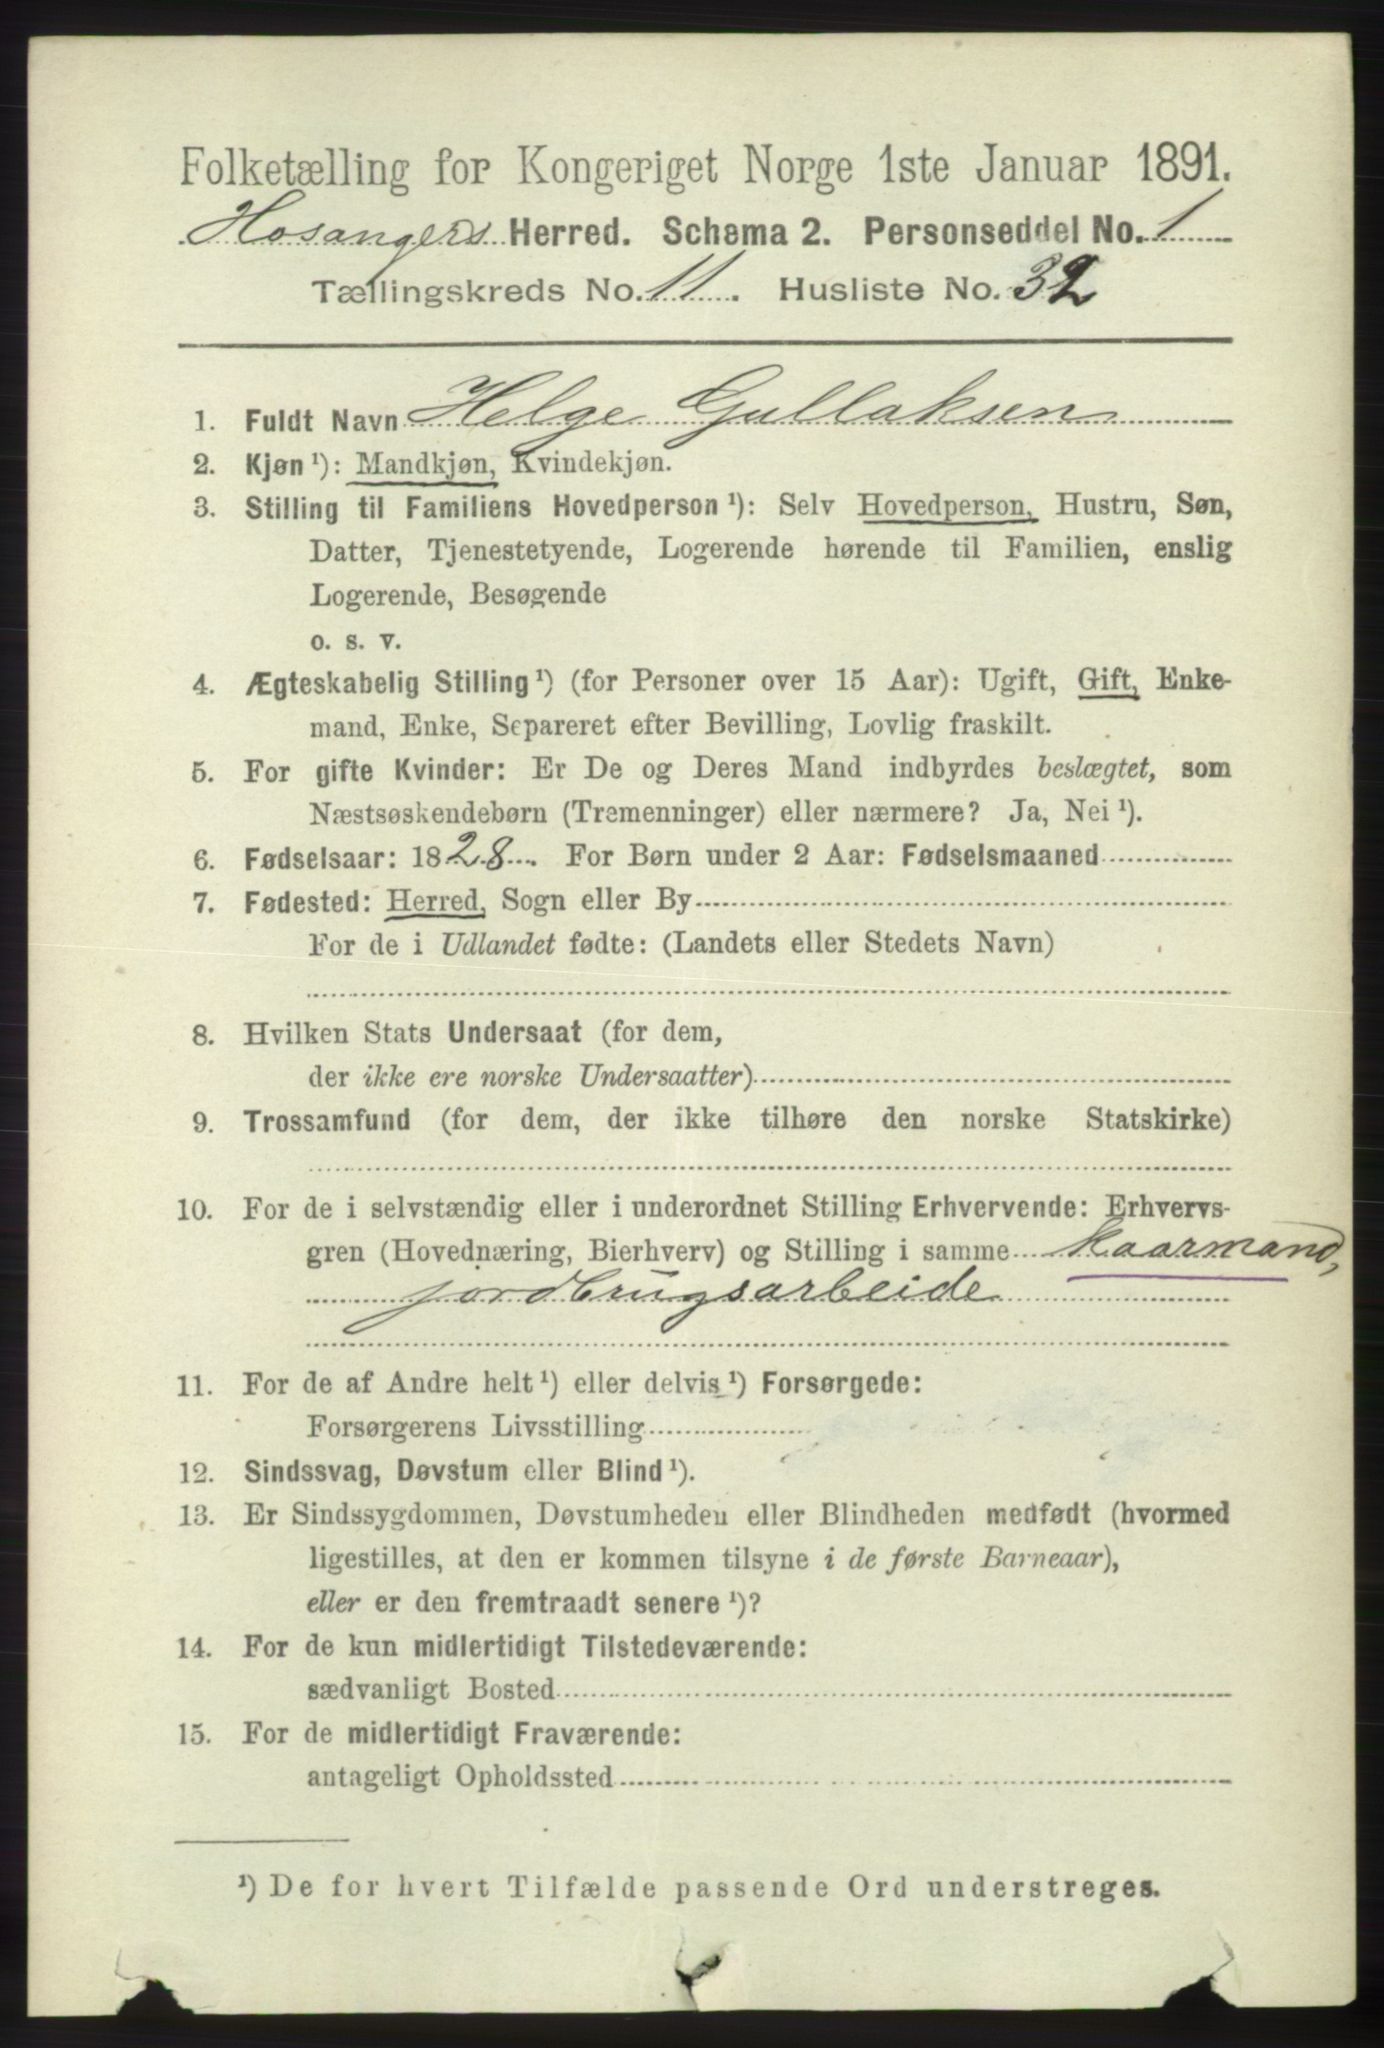 Folketælling for Kongeriget Norge 1ste Januar 1891.
Hosangers Herred. Schema 2. Personseddel No. 1
Tællingskreds No. 11. Husliste No. 32
1. Fuldt Navn Helge Gullaksen
2. Kjøn ¹): Mandkjøn, Kvindekjøn.
3. Stilling til Familiens Hovedperson ¹): Selv Hovedperson, Hustru, Søn,
Datter, Tjenestetyende, Logerende hørende til Familien, enslig
Logerende, Besøgende
o. s. v.
4. Ægteskabelig Stilling ¹) (for Personer over 15 Aar): Ugift, Gift, Enke-
mand, Enke, Separeret efter Bevilling, Lovlig fraskilt.
5. For gifte Kvinder: Er De og Deres Mand indbyrdes beslægtet, som
Næstsøskendebørn (Tremenninger) eller nærmere? Ja, Nei ¹).
6. Fødselsaar: 1828. For Børn under 2 Aar: Fødselsmaaned
7. Fødested: Herred, Sogn eller By
For de i Udlandet fødte: (Landets eller Stedets Navn)
8. Hvilken Stats Undersaat (for dem,
der ikke ere norske Undersaatter)
9. Trossamfund (for dem, der ikke tilhøre den norske Statskirke)
10. For de i selvstændig eller i underordnet Stilling Erhvervende: Erhvervs-
gren (Hovednæring, Bierhverv) og Stilling i samme kaarmand,
jordbrugsarbeide
11. For de af Andre helt ¹) eller delvis ¹) Forsørgede:
Forsørgerens Livsstilling
12. Sindssvag, Døvstum eller Blind ¹).
13. Er Sindssygdommen, Døvstumheden eller Blindheden medfødt (hvormed
ligestilles, at den er kommen tilsyne i de første Barneaar),
eller er den fremtraadt senere ¹)?
14. For de kun midlertidigt Tilstedeværende:
sædvanligt Bosted
15. For de midlertidigt Fraværende:
antageligt Opholdssted
¹) De for hvert Tilfælde passende Ord understreges.